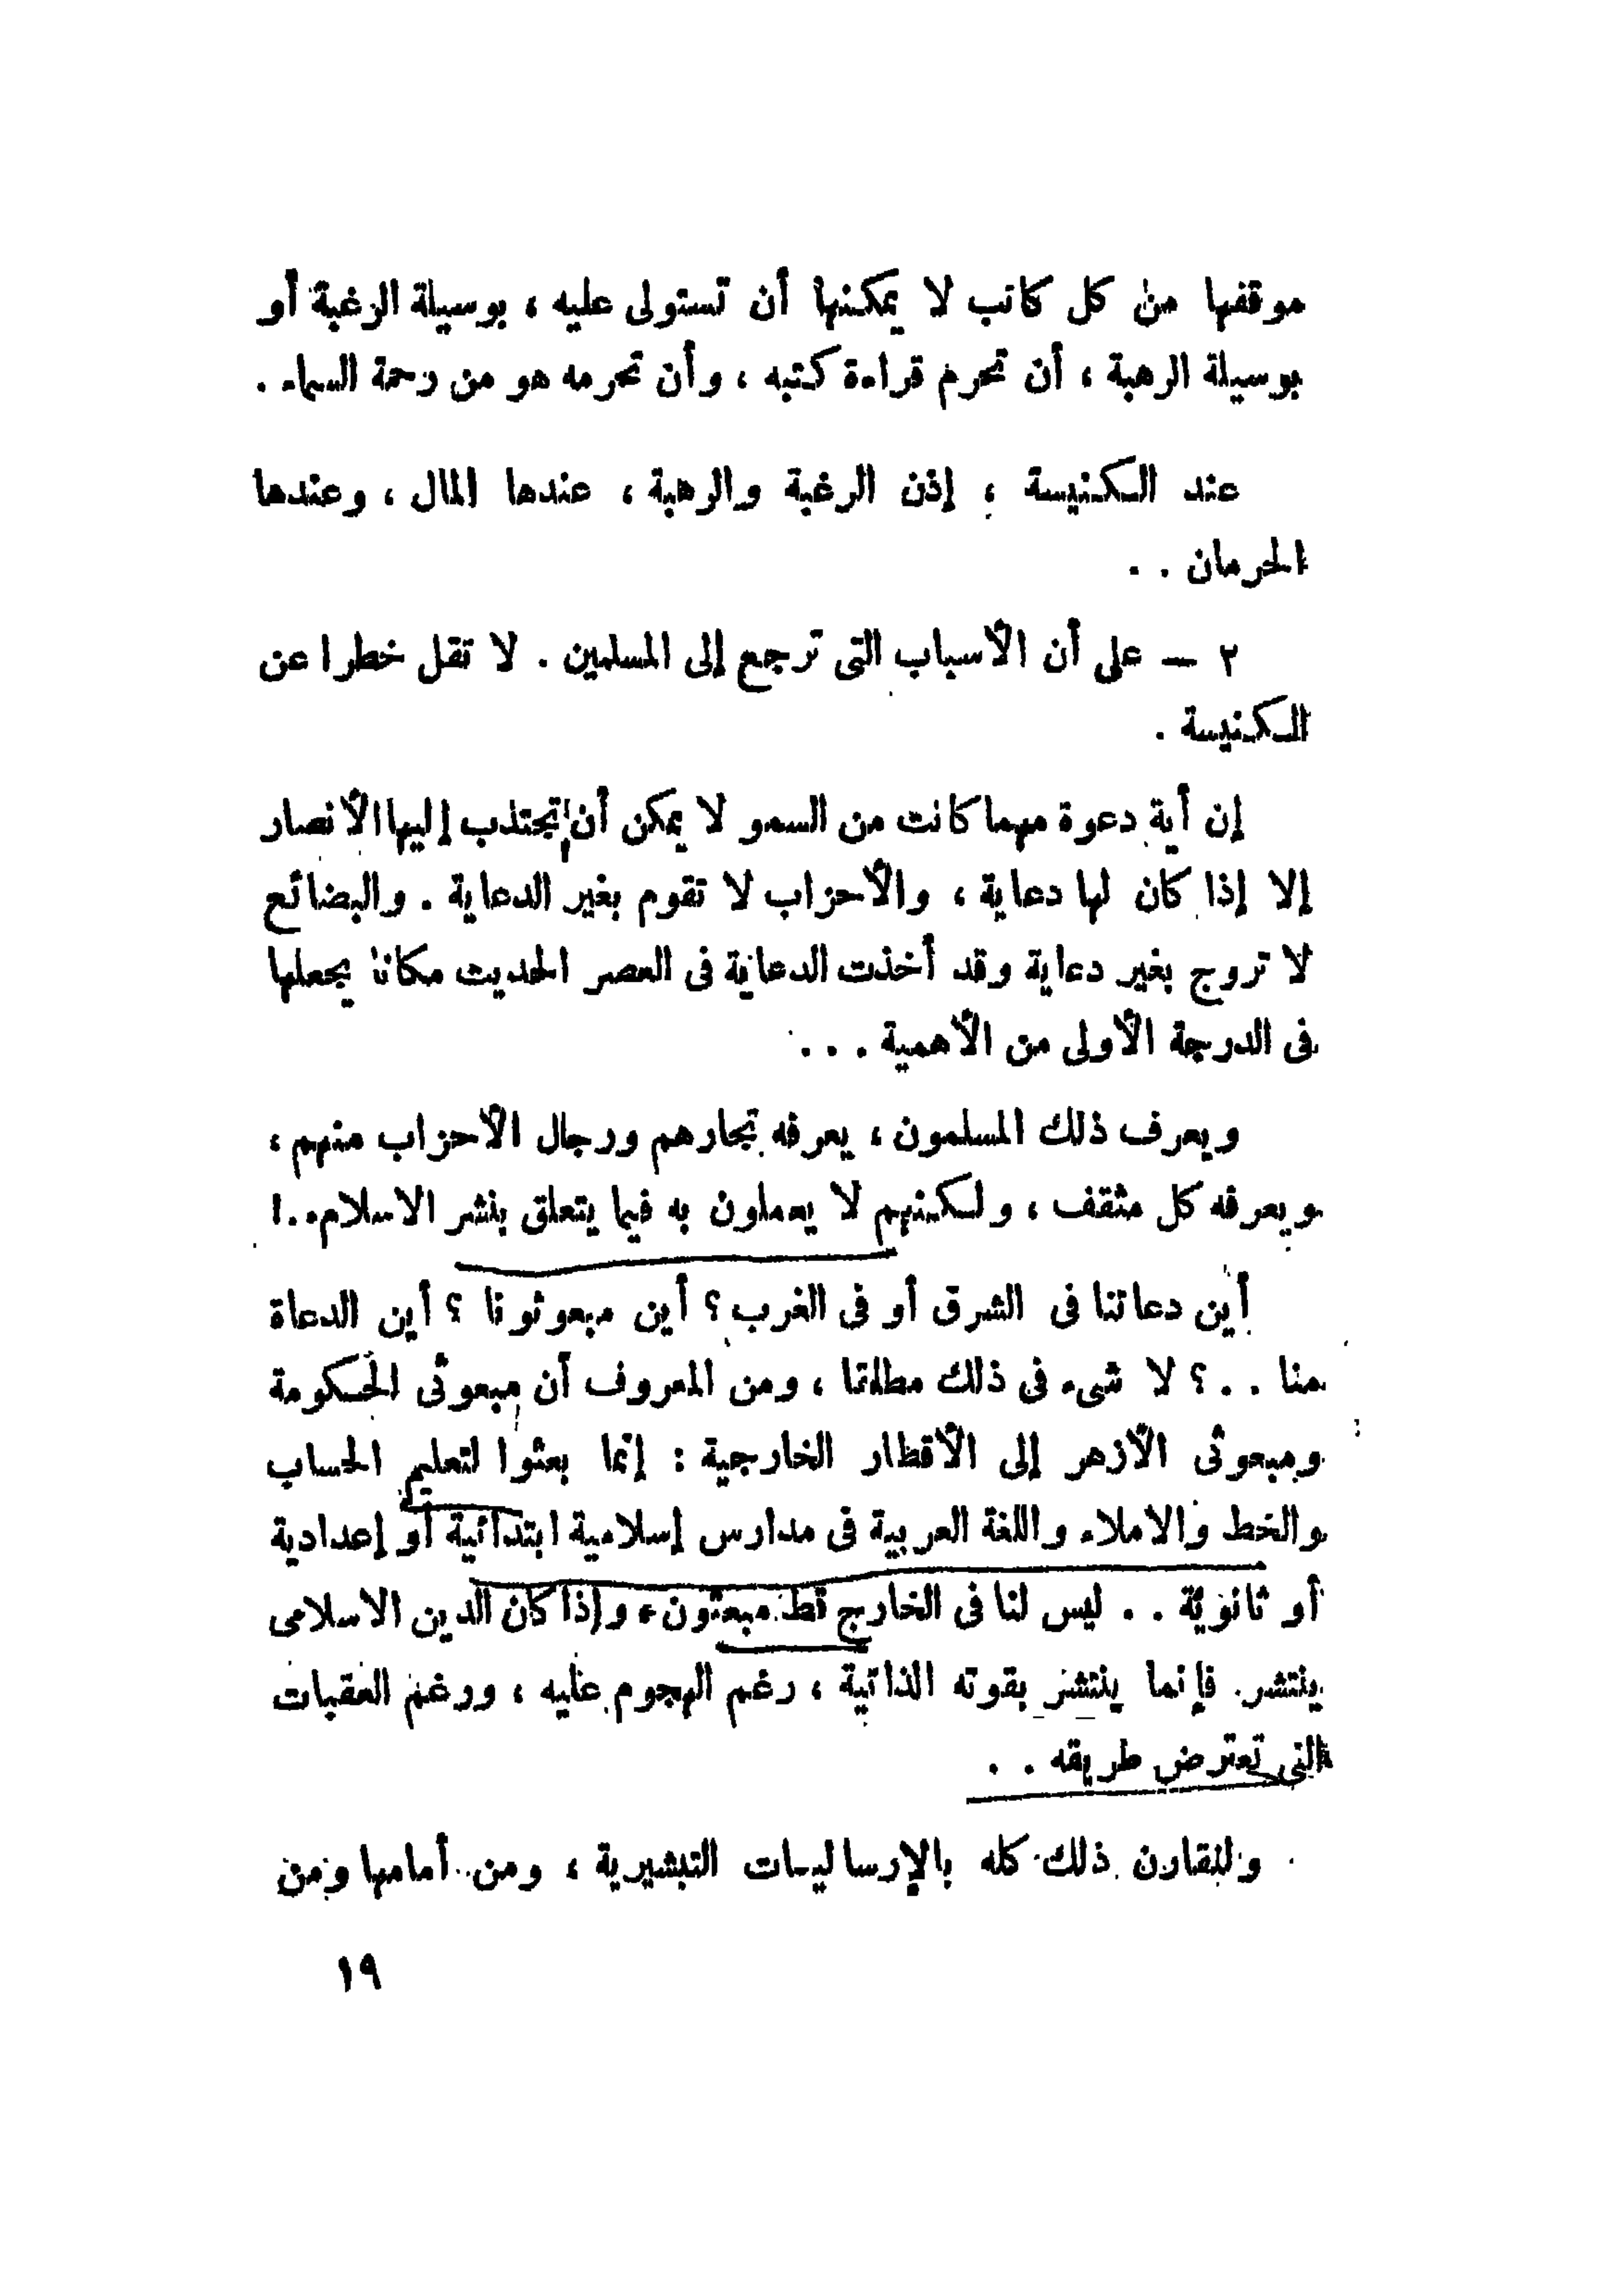 موقفها من كل كاتب لا يمكنها أن تستولى عليه ، بوسيلة الرغبة أو
بوسيلة الرهبة ، أن تحرم قراءة كتبه ، وأن تحرمه هو من رحمة السماء .
عند الكنيسة ، إذن الرغبة والرهبة ، عندها المال ، وعندها
الحرمان . .
٢ — على أن الأسباب التى ترجع إلى المسلمين . لا تقل خطرا عن
الكنيسة .
إن أية دعوة مهما كانت من السمو لا يمكن أن تجتذب إليها الأنصار
إلا إذا كان لها دعاية ، والأحزاب لا تقوم بغير الدعاية . والبضائع
لا تروج بغير دعاية وقد أخذت الدعاية فى العصر الحديث مكانا يجعلها
فى الدرجة الأولى من الأهمية . . .
ويعرف ذلك المسلمون ، يعرفه تجارهم ورجال الأحزاب منهم ،
ويعرفه كل مثقف ، ولكنهم لا يعملون به فيما يتعلق بنشر الاسلام..!
أين دعاتنا فى الشرق أو فى الغرب ؟ أين مبعوثونا ؟ أين الدعاة
منا . . ؟ لا شىء فى ذلك مطلقا ، ومن المعروف أن مبعوثى الحكومة
ومبعوثى الأزهر إلى الأقطار الخارجية : إنما بعثوا لتعليم الحساب
والخط والاملاء واللغة العربية فى مدارس إسلامية ابتدائية أو إعدادية
أو ثانوية . . ليس لنا فى الخارج قط مبعثون ، وإذا كان الدين الاسلامى
ينتشر. فإنما ينتشر بقوته الذاتية ، رغم الهجوم عليه ، ورغم العقبات
التى تعترض طريقه . .
ولنقارن ذلك كله بالإرساليات التبشيرية ، ومن أمامها ومن
١٩